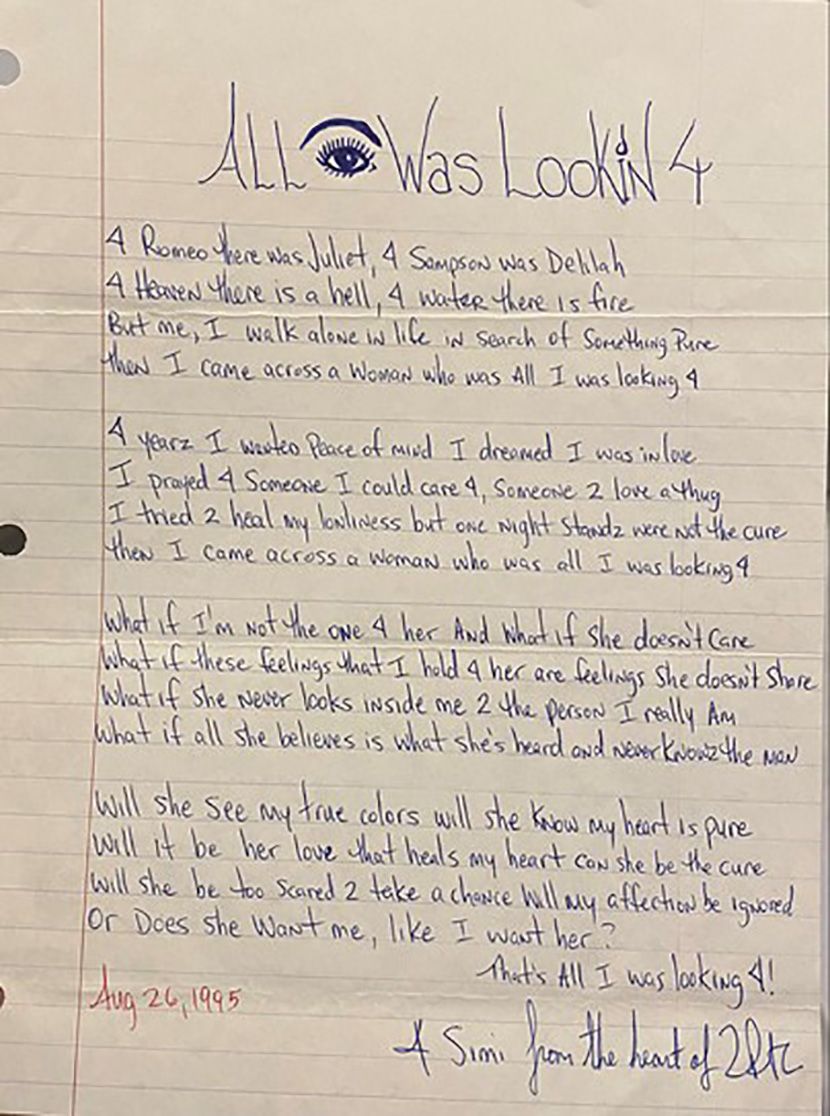 ALL Was Lookin 4
4 Romeo there was Juliet, 4 Sampson was Delilah
4 Heaven there is a hell, 4 water there is fire
But me, I walk alone in life in search of Something Pure
then I came across a Woman who was All I was looking 4
4 yearz I wanted Peace of mind I dreamed I was in love
I prayed 4 Someone I could care 4, Someone 2 love a thug
I tried 2 heal my lonliness but one night Standz were not the cure
then I came across a woman who was all I was looking 4
What if I'm not the one 4 her And What if She doesn't Care
What if these feelings that I hold 4 her are feelings She doesn't Share
What if She never looks inside me 2 the person I really Am
What if all she believes is what she's heard and never knowz the man
Will she See my true colors will she know my heart is pure
Will it be her love that heals my heart can she be the cure
Will she be too Scared 2 take a chance Will my affection be ignored
Or Does she Want me, like I want her?
That's All I was looking 4!
Aug 26, 1995
4 Simi from the heart of 2Pac